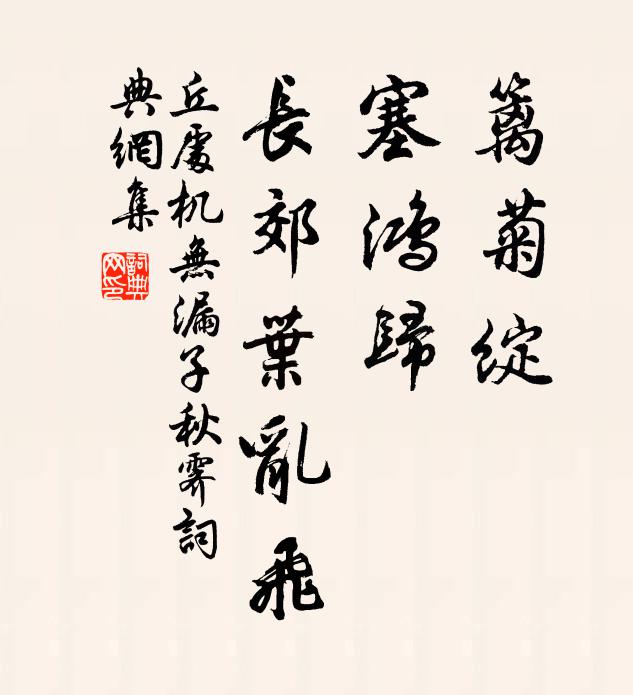 籬菊綻
塞鴻歸
長郊葉亂飛
丘處机無漏子秋霽詞
典網集
詞典網印